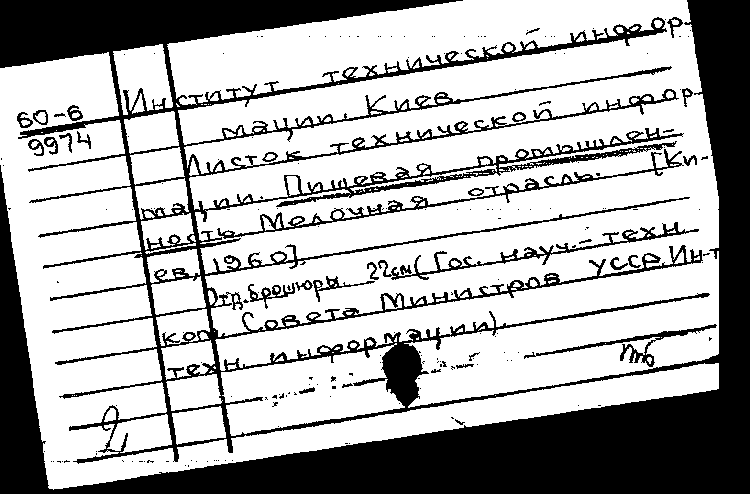 60-6
9974
Институт технической инфор-
мации. Киев.
Листок технической инфор-
мации. Пищевая промышлен-
ность. Молочная отрасль. [Ки-
ев, 1960].
Отд. брошюры. 22 см (Гос. науч.-техн.
ком. Совета Министров УССР. Ин-т
техн. информации).
2